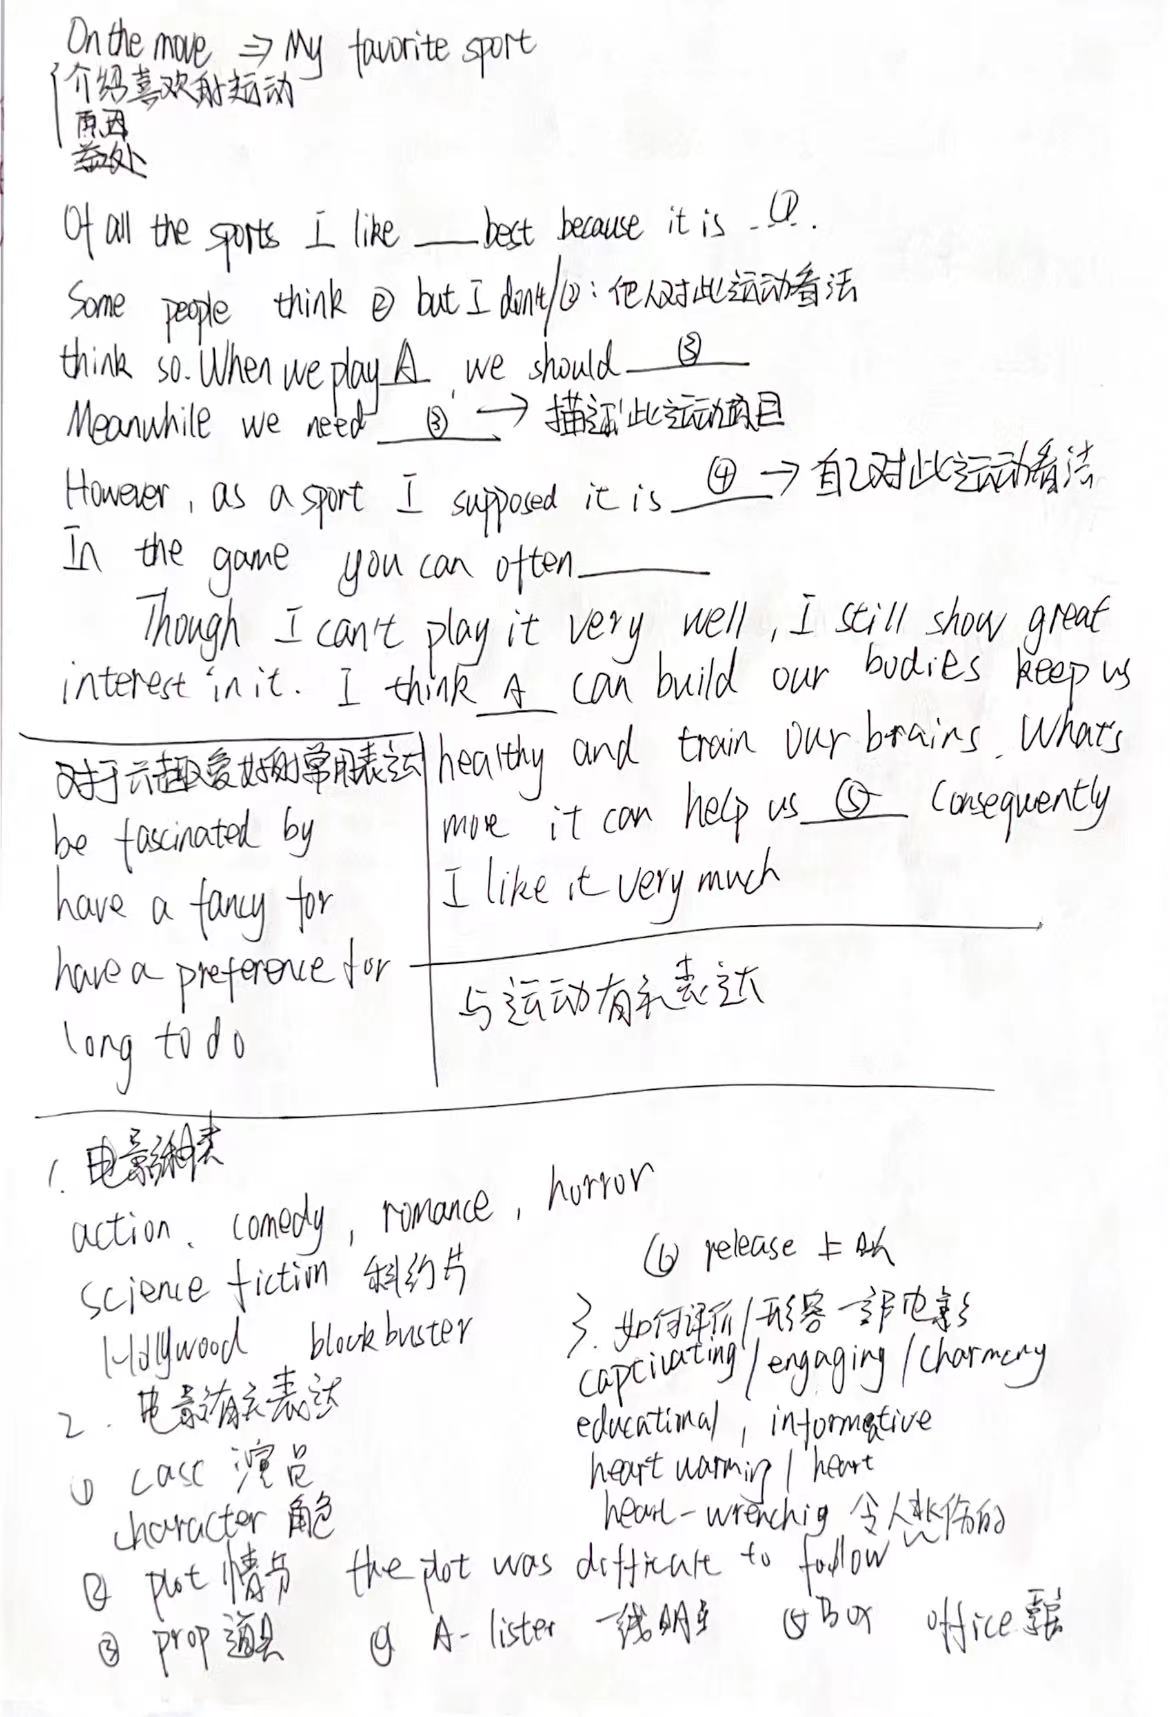 On the move ⇒ My favorite sport
介绍喜欢的运动
原因
益处
Of all the sports I like ___ best because it is ①.
Some people think ② but I don't/②: 他人对此运动看法
think so. When we play A, we should ③
Meanwhile we need ③ → 描述此运动项目
However, as a sport I supposed it is ④ → 自己对此运动看法
In the game you can often ___
Though I can't play it very well, I still show great
interest in it. I think A can build our bodies keep us
healthy and train our brains. What's
more it can help us ⑤ Consequently
I like it very much
对于兴趣爱好的常用表达
be fascinated by
have a fancy for
have a preference for
long to do
与运动有关表达
1. 电影种类
action、comedy, romance, horror
science fiction 科幻片
Hollywood blockbuster
2. 电影有关表达
① cast 演员
character 角色
② plot 情节 the plot was difficult to follow
③ prop 道具 ④ A-lister 一线明星 ⑤ Box office 票房
⑥ release 上映
3. 如何评价/形容一部电影
captivating/engaging/charming
educational, informative
heart warming / heart
heart-wrenchig 令人悲伤的